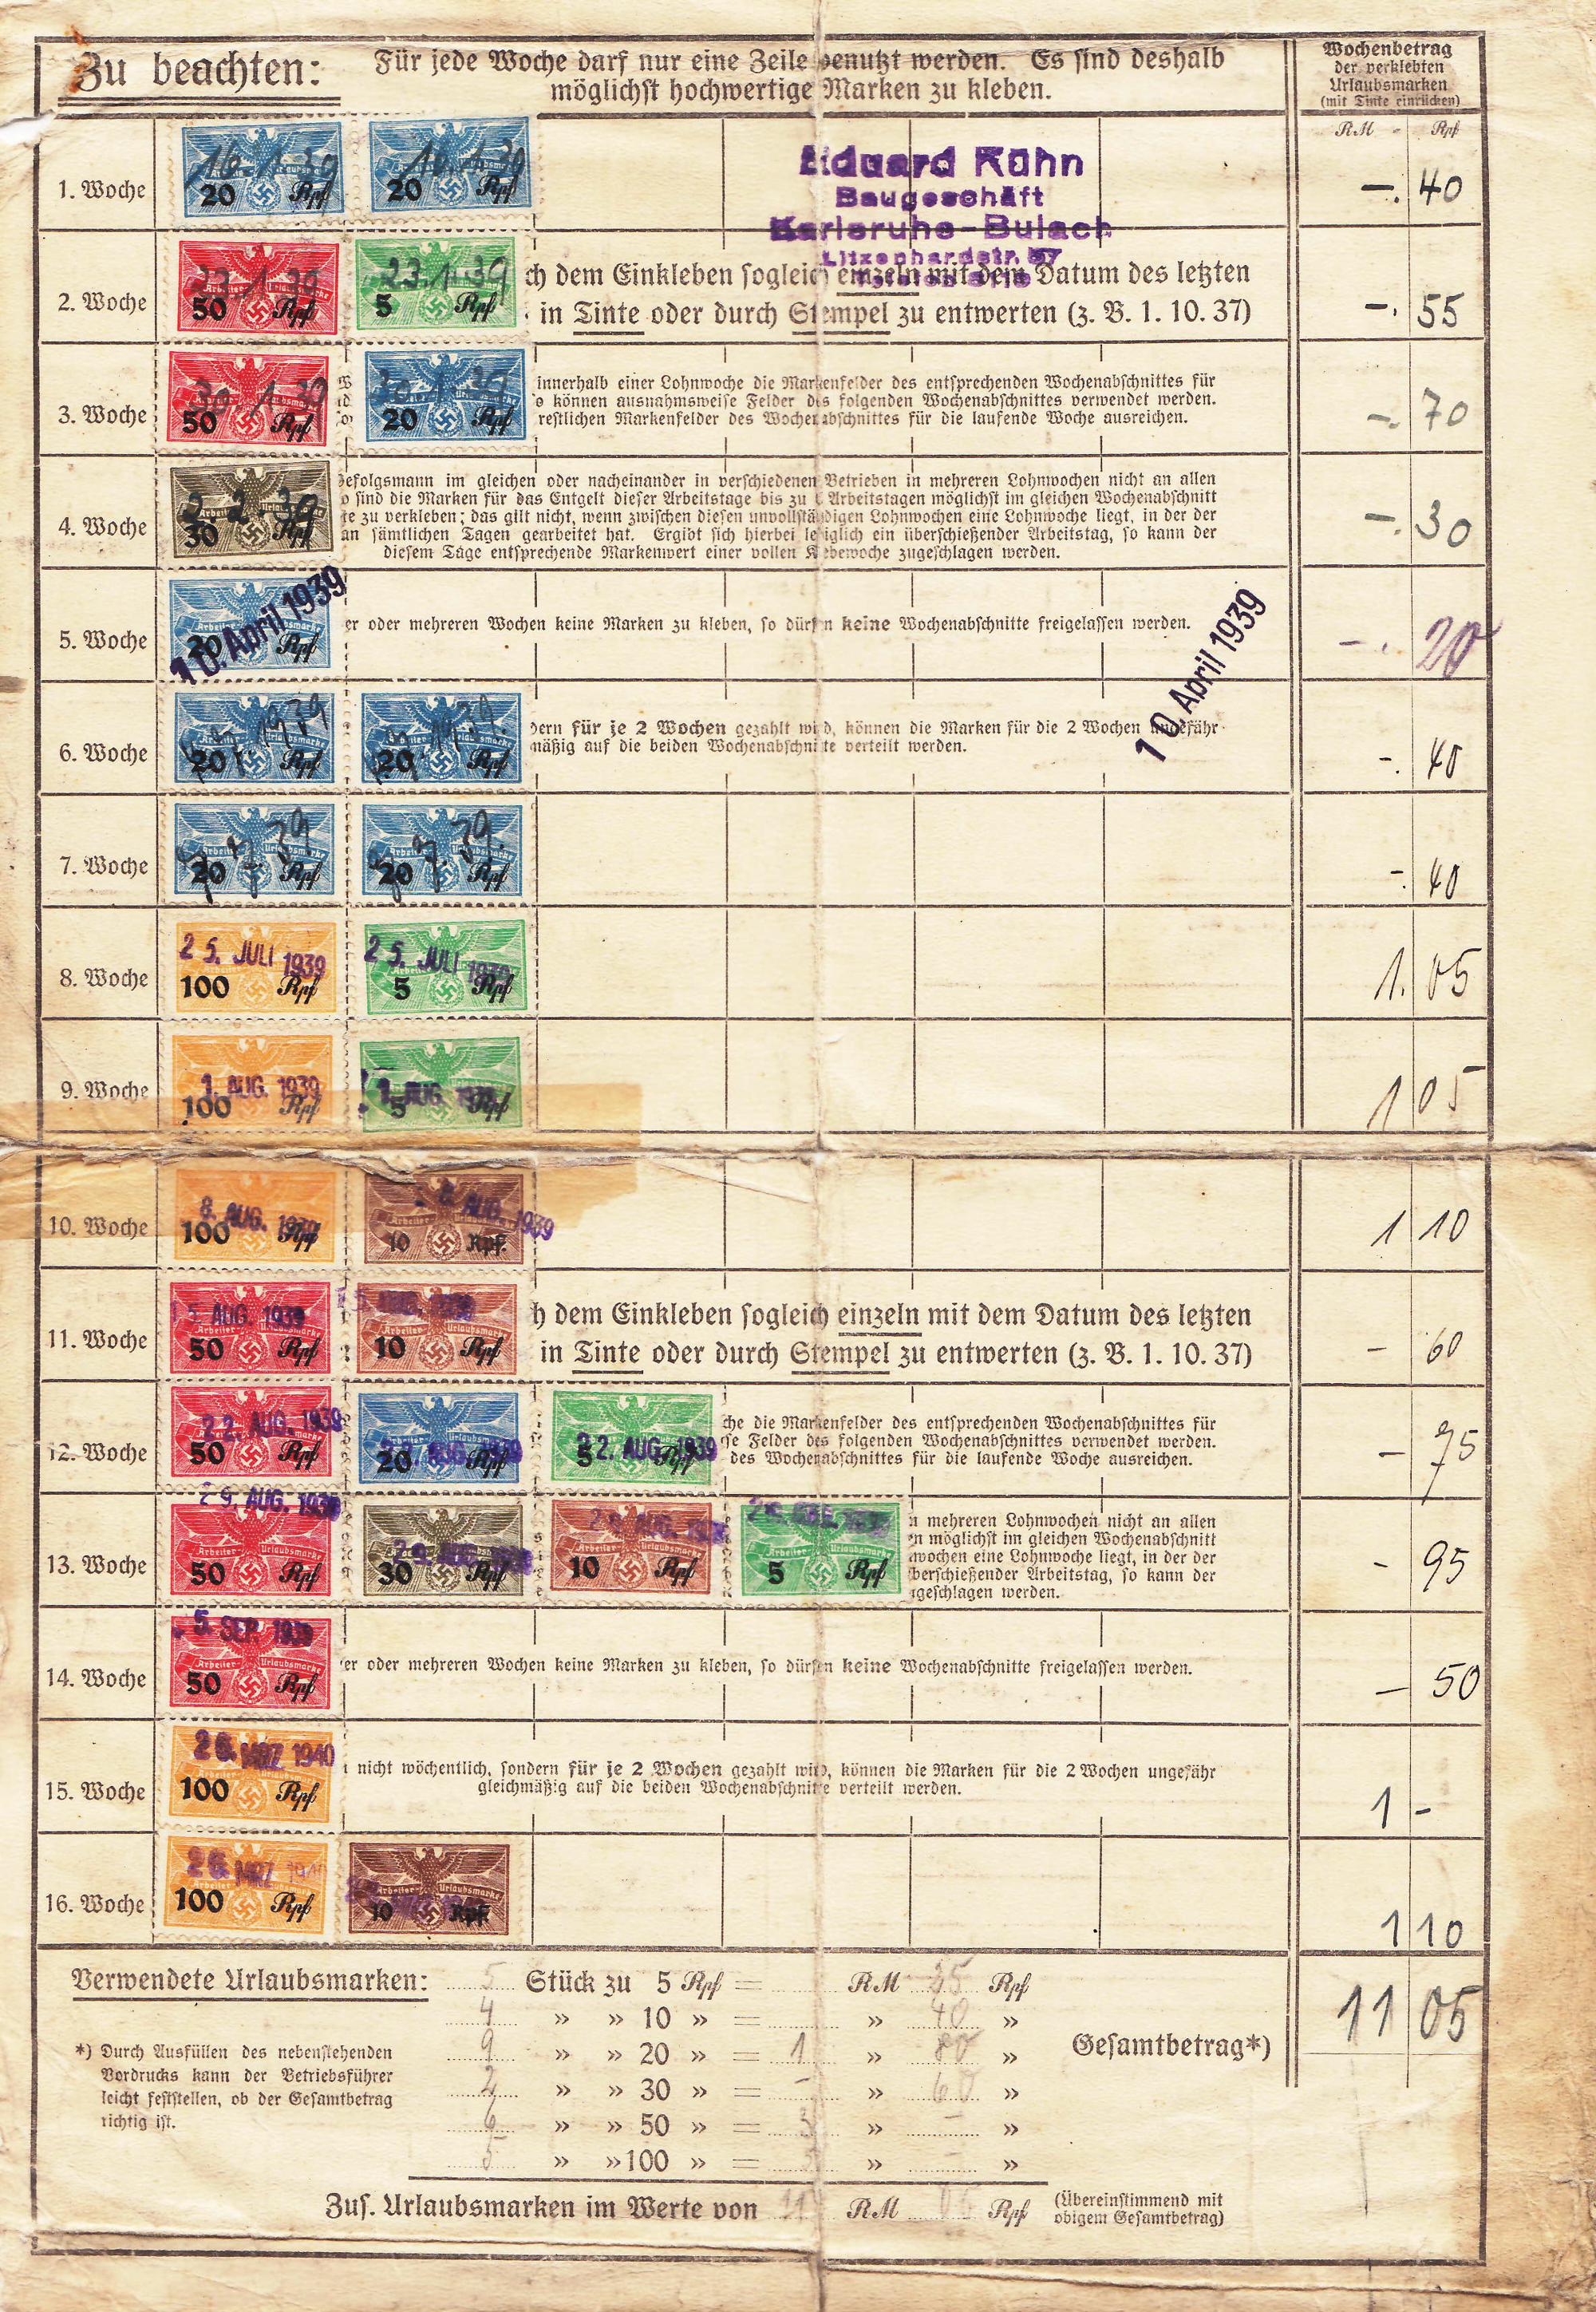 Zu beachten:
Für jede Woche darf nur eine Zeile benutzt werden. Es sind deshalb
möglichst hochwertige Marken zu kleben.
Wochenbetrag
der verklebten
Urlaubsmarken
(mit Tinte einrücken)
RM - Rpf
1. Woche 20 Rpf 20 Rpf -. 40
Eduard Kühn
Baugeschäft
Karlsruhe-Bulach
2. Woche 50 Rpf 5 Rpf -. 55
23.1.39 23.1.39
ch dem Einkleben sogleich einzeln mit dem Datum des letzten
in Tinte oder durch Stempel zu entwerten (z. B. 1. 10. 37)
3. Woche 50 Rpf 20 Rpf -. 70
30.1.39 30.1.39
innerhalb einer Lohnwoche die Markenfelder des entsprechenden Wochenabschnittes für
o können ausnahmsweise Felder des folgenden Wochenabschnittes verwendet werden.
restlichen Markenfelder des Wochenabschnittes für die laufende Woche ausreichen.
4. Woche 30 Rpf -. 30
Gefolgsmann im gleichen oder nacheinander in verschiedenen Betrieben in mehreren Lohnwochen nicht an allen
o sind die Marken für das Entgelt dieser Arbeitstage bis zu 6 Arbeitstagen möglichst im gleichen Wochenabschnitt
te zu verkleben; das gilt nicht, wenn zwischen diesen unvollständigen Lohnwochen eine Lohnwoche liegt, in der der
an sämtlichen Tagen gearbeitet hat. Ergibt sich hierbei lediglich ein überschießender Arbeitstag, so kann der
diesem Tage entsprechende Markenwert einer vollen Klebewoche zugeschlagen werden.
5. Woche 20 Rpf -. 20
10. April 1939
er oder mehreren Wochen keine Marken zu kleben, so dürfen keine Wochenabschnitte freigelassen werden.
10. April 1939
6. Woche 20 Rpf 20 Rpf -. 40
dern für je 2 Wochen gezahlt wird, können die Marken für die 2 Wochen ungefähr
mäßig auf die beiden Wochenabschnitte verteilt werden.
7. Woche 20 Rpf 20 Rpf -. 40
8. Woche 100 Rpf 5 Rpf 1. 05
25. JULI 1939 25. JULI 1939
9. Woche 100 Rpf 5 Rpf 1 05
1. AUG. 1939 1. AUG. 1939
10. Woche 100 Rpf 10 Rpf. 1 10
8. AUG. 1939 8. AUG. 1939
11. Woche 50 Rpf 10 Rpf - 60
15. AUG. 1939
h dem Einkleben sogleich einzeln mit dem Datum des letzten
in Tinte oder durch Stempel zu entwerten (z. B. 1. 10. 37)
12. Woche 50 Rpf 20 Rpf 5 Rpf - 75
22. AUG. 1939 22. AUG. 1939 22. AUG. 1939
che die Markenfelder des entsprechenden Wochenabschnittes für
se Felder des folgenden Wochenabschnittes verwendet werden.
des Wochenabschnittes für die laufende Woche ausreichen.
13. Woche 50 Rpf 30 Rpf 10 Rpf 5 Rpf - 95
29. AUG. 1939
n mehreren Lohnwochen nicht an allen
n möglichst im gleichen Wochenabschnitt
nwochen eine Lohnwoche liegt, in der der
berschießender Arbeitstag, so kann der
geschlagen werden.
14. Woche 50 Rpf - 50
5. SEP. 1939
er oder mehreren Wochen keine Marken zu kleben, so dürfen keine Wochenabschnitte freigelassen werden.
15. Woche 100 Rpf 1 -
26. MRZ 1940
nicht wöchentlich, sondern für je 2 Wochen gezahlt wird, können die Marken für die 2 Wochen ungefähr
gleichmäßig auf die beiden Wochenabschnitte verteilt werden.
16. Woche 100 Rpf 10 Rpf. 1 10
26. MRZ 1940
Verwendete Urlaubsmarken: 5 Stück zu 5 Rpf = RM 25 Rpf
4 » » 10 » = » 40 »
9 » » 20 » = 1 » 80 »
2 » » 30 » = - » 60 »
6 » » 50 » = 3 » - »
5 » » 100 » = 5 » - »
Gesamtbetrag*) 11 05
*) Durch Ausfüllen des nebenstehenden
Vordrucks kann der Betriebsführer
leicht feststellen, ob der Gesamtbetrag
richtig ist.
Zus. Urlaubsmarken im Werte von 11 RM 05 Rpf
(Übereinstimmend mit
obigem Gesamtbetrag)